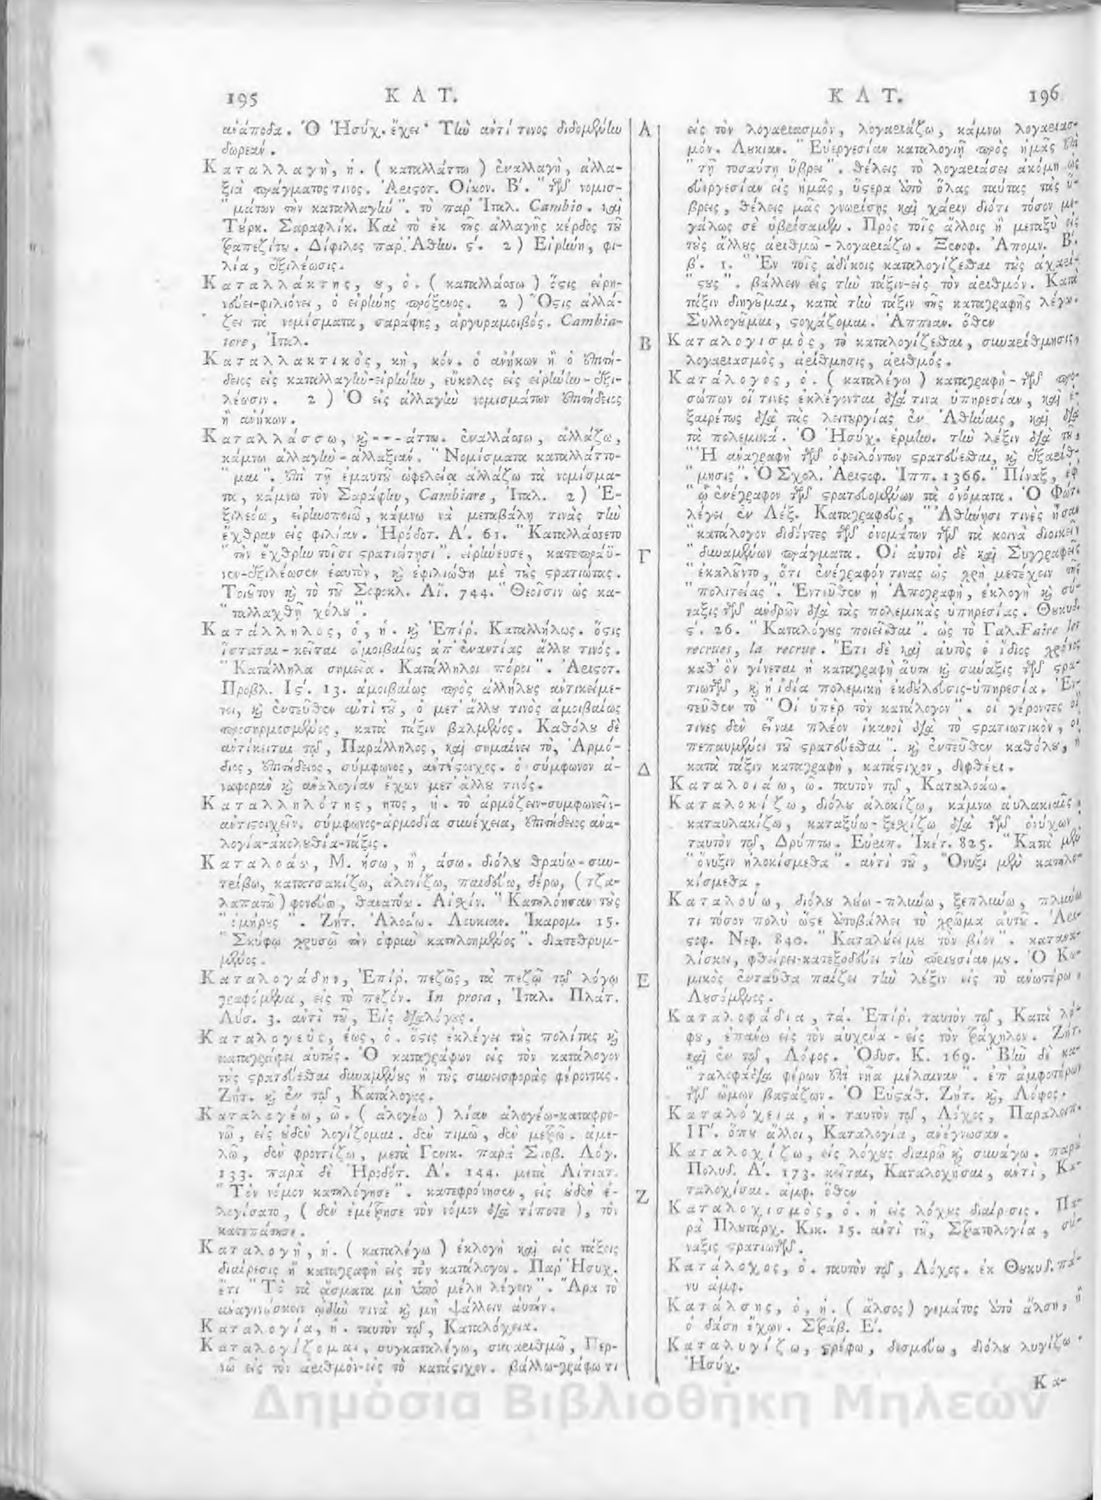 195 Κ Α Τ.
ανάποδα. Ὁ Ἡσύχ. ἔχει· Τὴν ἀντί τινος διδομένην
δωρεάν.
Καταλλαγὴ, ἡ. (καταλλάττω) ἐναλλαγὴ, ἀλλα-
ξιὰ πράγματος τινος. Ἀριστοτ. Οἰκον. Β'. "τῶν νομισ-
"μάτων τὴν καταλλαγὴν". τὸ παρ' Ἰταλ. Cambio. καὶ
Τύρκ. Σαραφλίκ. Καὶ τὸ ἐκ τῆς ἀλλαγῆς κέρδος τοῦ
τραπεζίτου. Δίφιλος παρ' Ἀθην. ς'. 2) Εἰρήνη, φι-
λία, ἐξιλέωσις.
Καταλλάκτης, ου, ὁ. (καταλλάσσω) ὅστις εἰρη-
νεύει-φιλιόνει, ὁ εἰρήνης πρόξενος. 2) Ὅστις ἀλλά-
ζει τὰ νομίσματα, σαράφης, ἀργυραμοιβός. Cambia-
tore, Ἰταλ.
Καταλλακτικὸς, κὴ, κόν. ὁ ἀνήκων ἢ ὁ ἐπιτή-
δειος εἰς καταλλαγὴν-εἰρήνην, εὔκολος εἰς εἰρήνην-ἐξι-
λέωσιν. 2) Ὁ εἰς ἀλλαγὴν νομισμάτων ἐπιτήδειος
ἢ ἀνήκων.
Καταλλάσσω, καὶ---άττω. ἐναλλάσσω, ἀλλάζω,
κάμνω ἀλλαγὴν-ἀλλαξιάν. "Νομίσματα καταλλάττο-
"μαι". ἐπὶ τῇ ἐμαυτοῦ ὠφελείᾳ ἀλλάζω τὰ νομίσμα-
τα, κάμνω τὸν Σαράφην, Cambiare, Ἰταλ. 2) Ἐ-
ξιλεόω, εἰρηνοποιῶ, κάμνω νὰ μεταβάλῃ τινὰς τὴν
ἔχθραν εἰς φιλίαν. Ἡρόδοτ. Α'. 61. "Καταλλάσσετο
"τὴν ἔχθρην τοῖσι στρατιώτῃσι". εἰρήνευσε, κατεπράϋ-
νεν-ἐξιλέωσεν ἑαυτὸν, καὶ ἐφιλιώθη μὲ τοὺς στρατιώτας.
Τοιοῦτον καὶ τὸ τοῦ Σοφοκλ. Αἴ. 744. "Θεοῖσιν ὡς κα-
"ταλλαχθῇ χόλου".
Κατάλληλος, ὁ, ἡ. καὶ Ἐπίρ. Καταλλήλως. ὅστις
ἵσταται-κεῖται ἀμοιβαίως ἀπ' ἐναντίας ἄλλου τινός.
"Κατάλληλα σημεῖα. Κατάλληλοι πόροι". Ἀριστοτ.
Προβλ. Ις'. 13. ἀμοιβαίως πρὸς ἀλλήλους ἀντικείμε-
νοι, καὶ ἐντεῦθεν ἀντὶ τοῦ, ὁ μετ' ἄλλου τινὸς ἀμοιβαίως
προσηρμοσμένος, κατὰ τάξιν βαλμένος. Καθόλου δὲ
ἀντίκειται τῷ, Παράλληλος, καὶ σημαίνει τὸ, Ἁρμό-
διος, ἐπιτήδειος, σύμφωνος, ἀντίστοιχος. ὁ σύμφωνον ἀ-
ναφορὰν καὶ ἀναλογίαν ἔχων μετ' ἄλλου τινός.
Καταλληλότης, ητος, ἡ. τὸ ἁρμόζειν-συμφωνεῖν-
ἀντιστοιχεῖν. σύμφωνος-ἁρμοδία συνέχεια, ἐπιτήδειος ἀνα-
λογία-ἀκολουθία-τάξις.
Καταλοάω, Μ. ήσω, ἢ, άσω. διόλου θραύω-συν-
τρίβω, κατατσακίζω, ἁλονίζω, παιδεύω, δέρω, (τζα-
λαπατῶ) φονεύω, θανατόω. Αἰσχίν. "Κατηλόησαν τοὺς
"ὁμήρους". Ζήτ. Ἀλοάω. Λουκιαν. Ἰκαρομ. 15.
"Σκύφῳ χρυσῷ τὴν ὀφρὺν κατηλοημένος". διατεθρυμ-
μένος.
Καταλογάδην, Ἐπίρ. πεζῶς, τὰ πεζῷ τῷ λόγῳ
γραφόμενα, εἰς τὸ πεζόν. In prosa, Ἰταλ. Πλάτ.
Λύσ. 3. ἀντὶ τοῦ, Εἰς διαλόγους.
Καταλογεὺς, έως, ὁ. ὅστις ἐκλέγει τοὺς πολίτας καὶ
καταγράφει αὐτούς. Ὁ καταγράφων εἰς τὸν κατάλογον
τοὺς στρατεύεσθαι δυναμένους ἢ τοὺς συνεισφορὰς φέροντας.
Ζήτ. καὶ ἐν τῷ, Κατάλογος.
Καταλογέω, ῶ. (ἀλογέω) λίαν ἀλογέω-καταφρο-
νῶ, εἰς οὐδὲν λογίζομαι. δὲν τιμῶ, δὲν μετρῶ. ἀμε-
λῶ, δὲν φροντίζω, μετὰ Γενικ. παρὰ Στοβ. Λόγ.
133. παρὰ δὲ Ἡροδότ. Α'. 144. μετὰ Αἰτιατ.
"Τὸν νόμον κατηλόγησε". κατεφρόνησεν, εἰς οὐδὲν ἐ-
λογίσατο, (δὲν ἐμέτρησε τὸν νόμον διὰ τίποτε), τὸν
κατεπάτησε.
Καταλογὴ, ἡ. (καταλέγω) ἐκλογὴ καὶ εἰς τάξεις
διαίρεσις ἢ καταγραφὴ εἰς τὸν κατάλογον. Παρ' Ἡσυχ.
ἔτι "Τὸ τὰ ᾄσματα μὴ ὑπὸ μέλη λέγειν". Ἄρα τὸ
ἀναγινώσκειν ᾠδήν τινα καὶ μὴ ψάλλειν αὐτήν.
Καταλογία, ἡ. ταυτὸν τῷ, Καταλόχεια.
Καταλογίζομαι, συγκαταλέγω, συναριθμῶ, Περ-
νῶ εἰς τὸν ἀριθμὸν-εἰς τὸ κατάστιχον. βάλλω-γράφω τι
Α
Β
Γ
Δ
Ε
Ζ
Κ Α Τ. 196
εἰς τὸν λογαριασμὸν, λογαριάζω, κάμνω λογαριασ-
μόν. Λουκιαν. "Εὐεργεσίαν καταλογιῇ πρὸς ἡμᾶς ἐπὶ
"τῇ τοσαύτῃ ὕβρει". θέλεις τὸ λογαριάσει ἀκόμη ὡς
εὐεργεσίαν εἰς ἡμᾶς, ὕστερα ἀπὸ ὅλας ταύτας τὰς ὕ-
βρεις, θέλεις μᾶς γνωρίσῃς καὶ χάριν διότι τόσον με-
γάλως σὲ ὑβρίσαμεν. Πρὸς τοῖς ἄλλοις ἢ μεταξὺ εἰς
τοὺς ἄλλους ἀριθμῶ-λογαριάζω. Ξενοφ. Ἀπομν. Β'.
β'. 1. "Ἐν τοῖς ἀδίκοις καταλογίζεσθαι τοὺς ἀχαρί-
"στους". βάλλειν εἰς τὴν τάξιν-εἰς τὸν ἀριθμόν. Κατὰ
τάξιν διηγοῦμαι, κατὰ τὴν τάξιν τῆς καταγραφῆς λέγω.
Συλλογοῦμαι, στοχάζομαι. Ἀππιαν. ὅθεν
Καταλογισμὸς, τὸ καταλογίζεσθαι, συναρίθμησις,
λογαριασμὸς, ἀρίθμησις, ἀριθμός.
Κατάλογος, ὁ. (καταλέγω) καταγραφὴ-τῶν προ-
σώπων οἵ τινες ἐκλέγονται διά τινα ὑπηρεσίαν, καὶ ἐ-
ξαιρέτως διὰ τὰς λειτουργίας ἐν Ἀθήναις, καὶ διὰ
τὰ πολεμικά. Ὁ Ἡσύχ. ἑρμην. τὴν λέξιν διὰ τοῦ,
"Ἡ ἀναγραφὴ τῶν ὀφειλόντων στρατεύεσθαι, καὶ ἐξαρίθ-
"μησις". Ὁ Σχολ. Ἀριστοφ. Ἱππ. 1366. "Πίναξ, ἐφ'
"ᾧ ἐνέγραφον τῶν στρατευομένων τὰ ὀνόματα. Ὁ Φώτ.
λέγει ἐν Λέξ. Καταγραφεὺς, "Ἀθήνῃσί τινες ἦσαν
"κατάλογον διδόντες τῶν ὀνομάτων τῶν τὰ κοινὰ διοικεῖν
"δυναμένων πράγματα. Οἱ αὐτοὶ δὲ καὶ Συγγραφεῖς
"ἐκαλοῦντο, ὅτι ἐνέγραφόν τινας ὡς χρὴ μετέχειν τῆς
"πολιτείας". Ἐντεῦθεν ἡ Ἀπογραφὴ, ἐκλογὴ καὶ σύ-
νταξις τῶν ἀνδρῶν διὰ τὰς πολεμικὰς ὑπηρεσίας. Θουκυδ.
ς'. 26. "Καταλόγους ποιεῖσθαι". ὡς τὸ Γαλ. Faire les
recrues, la recrue. Ἔτι δὲ καὶ αὐτὸς ὁ ἴδιος χρόνος
καθ' ὃν γίνεται ἡ καταγραφὴ αὕτη καὶ σύναξις τῶν στρα-
τιωτῶν, καὶ ἡ ἰδία πολεμικὴ ἐκδούλευσις-ὑπηρεσία. Ἐν-
τεῦθεν τὸ "Οἱ ὑπὲρ τὸν κατάλογον". οἱ γέροντες οἵ
τινες δὲν εἶναι πλέον ἱκανοὶ διὰ τὸ στρατιωτικὸν, οἱ
πεπαυμένοι τοῦ στρατεύεσθαι". καὶ ἐντεῦθεν καθόλου, ἡ
κατὰ τάξιν καταγραφὴ, κατάστιχον, διφθέρι.
Καταλοιάω, ῶ. ταυτὸν τῷ, Καταλοάω.
Καταλοκίζω, διόλου ἀλοκίζω, κάμνω αὐλακιαῖς,
καταυλακίζω, καταξύω-ξεσχίζω διὰ τῶν ὀνύχων
ταυτὸν τῷ, Δρύπτω. Εὐριπ. Ἱκέτ. 825. "Κατὰ μὲν
"ὄνυξιν ἠλοκίσμεθα". ἀντὶ τοῦ, Ὄνυξι μὲν κατηλο-
κίσμεθα.
Καταλούω, διόλου λούω-πλύνω, ξεπλύνω, πλύνω
τι τόσον πολὺ ὥστε ἀποβάλλει τὸ χρῶμα αὐτοῦ. Ἀρι-
στοφ. Νεφ. 840. "Καταλούει μου τὸν βίον". κατανα-
λίσκει, φθείρει-κατεξοδεύει τὴν περιουσίαν μου. Ὁ Κω-
μικὸς ἐνταῦθα παίζει τὴν λέξιν εἰς τὸ ἀνωτέρω,
Λουσόμενος.
Καταλοφάδια, τά. Ἐπίρ. ταυτὸν τῷ, Κατὰ λό-
φου, ἐπάνω εἰς τὸν αὐχένα-εἰς τὸν τράχηλον. Ζήτ.
καὶ ἐν τῷ, Λόφος. Ὀδυσ. Κ. 169. "Βῆν δὲ κα-
"ταλοφάδια φέρων ἐπὶ νῆα μέλαιναν". ἐπ' ἀμφοτέρων
τῶν ὤμων βαστάζων. Ὁ Εὐστάθ. Ζήτ. καὶ, Λόφος.
Καταλόχεια, ἡ. ταυτὸν τῷ, Λόχος, Παραλειπ.
ΙΓ'. ὅπου ἄλλοι, Καταλογία, ἀνέγνωσαν.
Καταλοχίζω, εἰς λόχους διαιρῶ καὶ συνάγω. παρὰ
Πολυδ. Α'. 173. κεῖται, Καταλοχῆσαι, ἀντὶ, Κα-
ταλοχίσαι. ἀμφ. ὅθεν
Καταλοχισμὸς, ὁ. ἡ εἰς λόχους διαίρεσις. Πα-
ρὰ Πλουτάρχ. Κικ. 15. ἀντὶ τοῦ, Στρατολογία, σύ-
ναξις στρατιωτῶν.
Κατάλοχος, ὁ. ταυτὸν τῷ, Λόχος. ἐκ Θουκυδ. πά-
νυ ἀμφ.
Κατάλσης, ὁ, ἡ. (ἄλσος) γεμάτος ἀπὸ ἄλση, ἢ
ὁ δάση ἔχων. Στράβ. Ε'.
Καταλυγίζω, στρέφω, δεσμεύω, διόλου λυγίζω.
Ἡσύχ.
Κα-
Δημόσια Βιβλιοθήκη Μηλεών